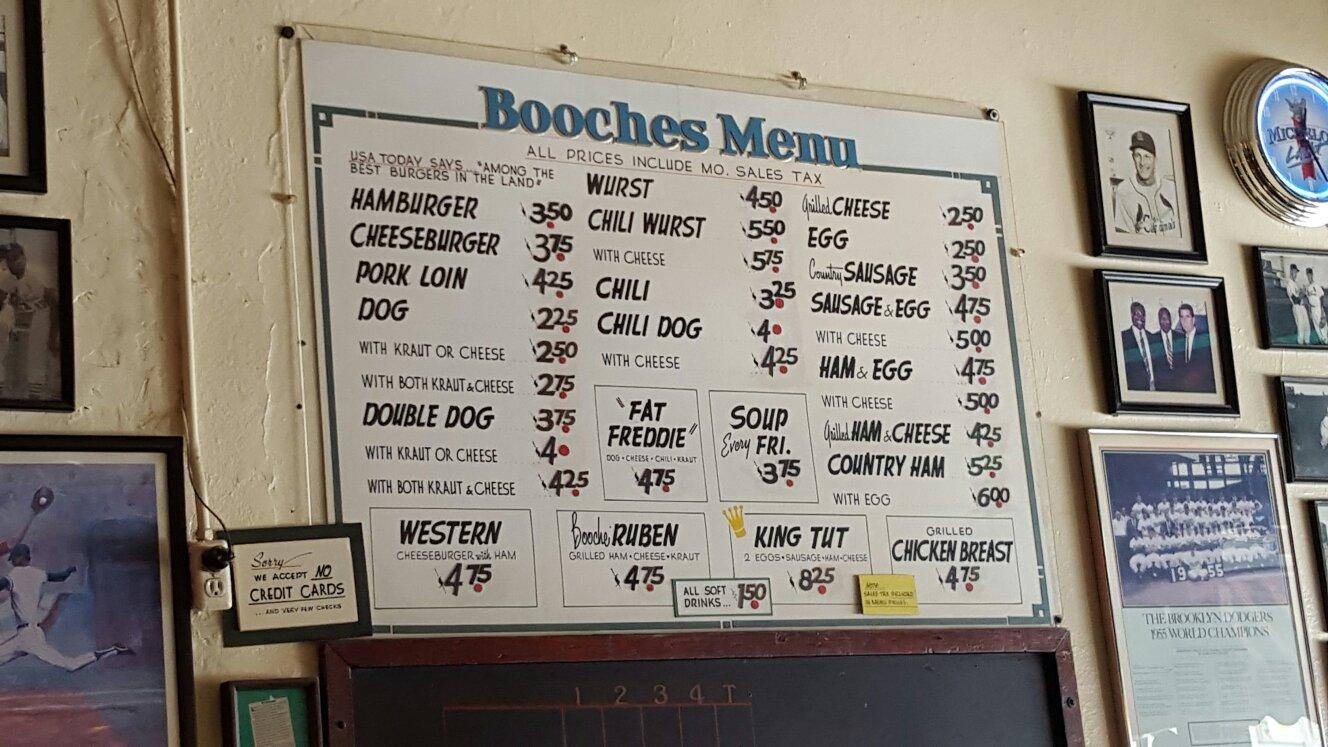 Booches Menu
ALL PRICES INCLUDE MO. SALES TAX
USA TODAY SAYS... "AMONG THE
BEST BURGERS IN THE LAND"
HAMBURGER 3.50
CHEESEBURGER 3.75
PORK LOIN 4.25
DOG 2.25
WITH KRAUT OR CHEESE 2.50
WITH BOTH KRAUT & CHEESE 2.75
DOUBLE DOG 3.75
WITH KRAUT OR CHEESE 4.
WITH BOTH KRAUT & CHEESE 4.25
WURST 4.50
CHILI WURST 5.50
WITH CHEESE 5.75
CHILI 3.25
CHILI DOG 4.
WITH CHEESE 4.25
"FAT
FREDDIE"
DOG • CHEESE • CHILI • KRAUT
4.75
SOUP
Every FRI.
3.75
Grilled CHEESE 2.50
EGG 2.50
Country SAUSAGE 3.50
SAUSAGE & EGG 4.75
WITH CHEESE 5.00
HAM & EGG 4.75
WITH CHEESE 5.00
Grilled HAM & CHEESE 4.25
COUNTRY HAM 5.25
WITH EGG 6.00
WESTERN
CHEESEBURGER with HAM
4.75
Booche RUBEN
GRILLED HAM • CHEESE • KRAUT
4.75
KING TUT
2 EGGS • SAUSAGE • HAM • CHEESE
8.25
GRILLED
CHICKEN BREAST
4.75
ALL SOFT
DRINKS... 1.50
NOTE
SALES TAX INCLUDED
IN MENU PRICES
Sorry
WE ACCEPT NO
CREDIT CARDS
...AND VERY FEW CHECKS
1 2 3 4 T
1955
THE BROOKLYN DODGERS
1955 WORLD CHAMPIONS